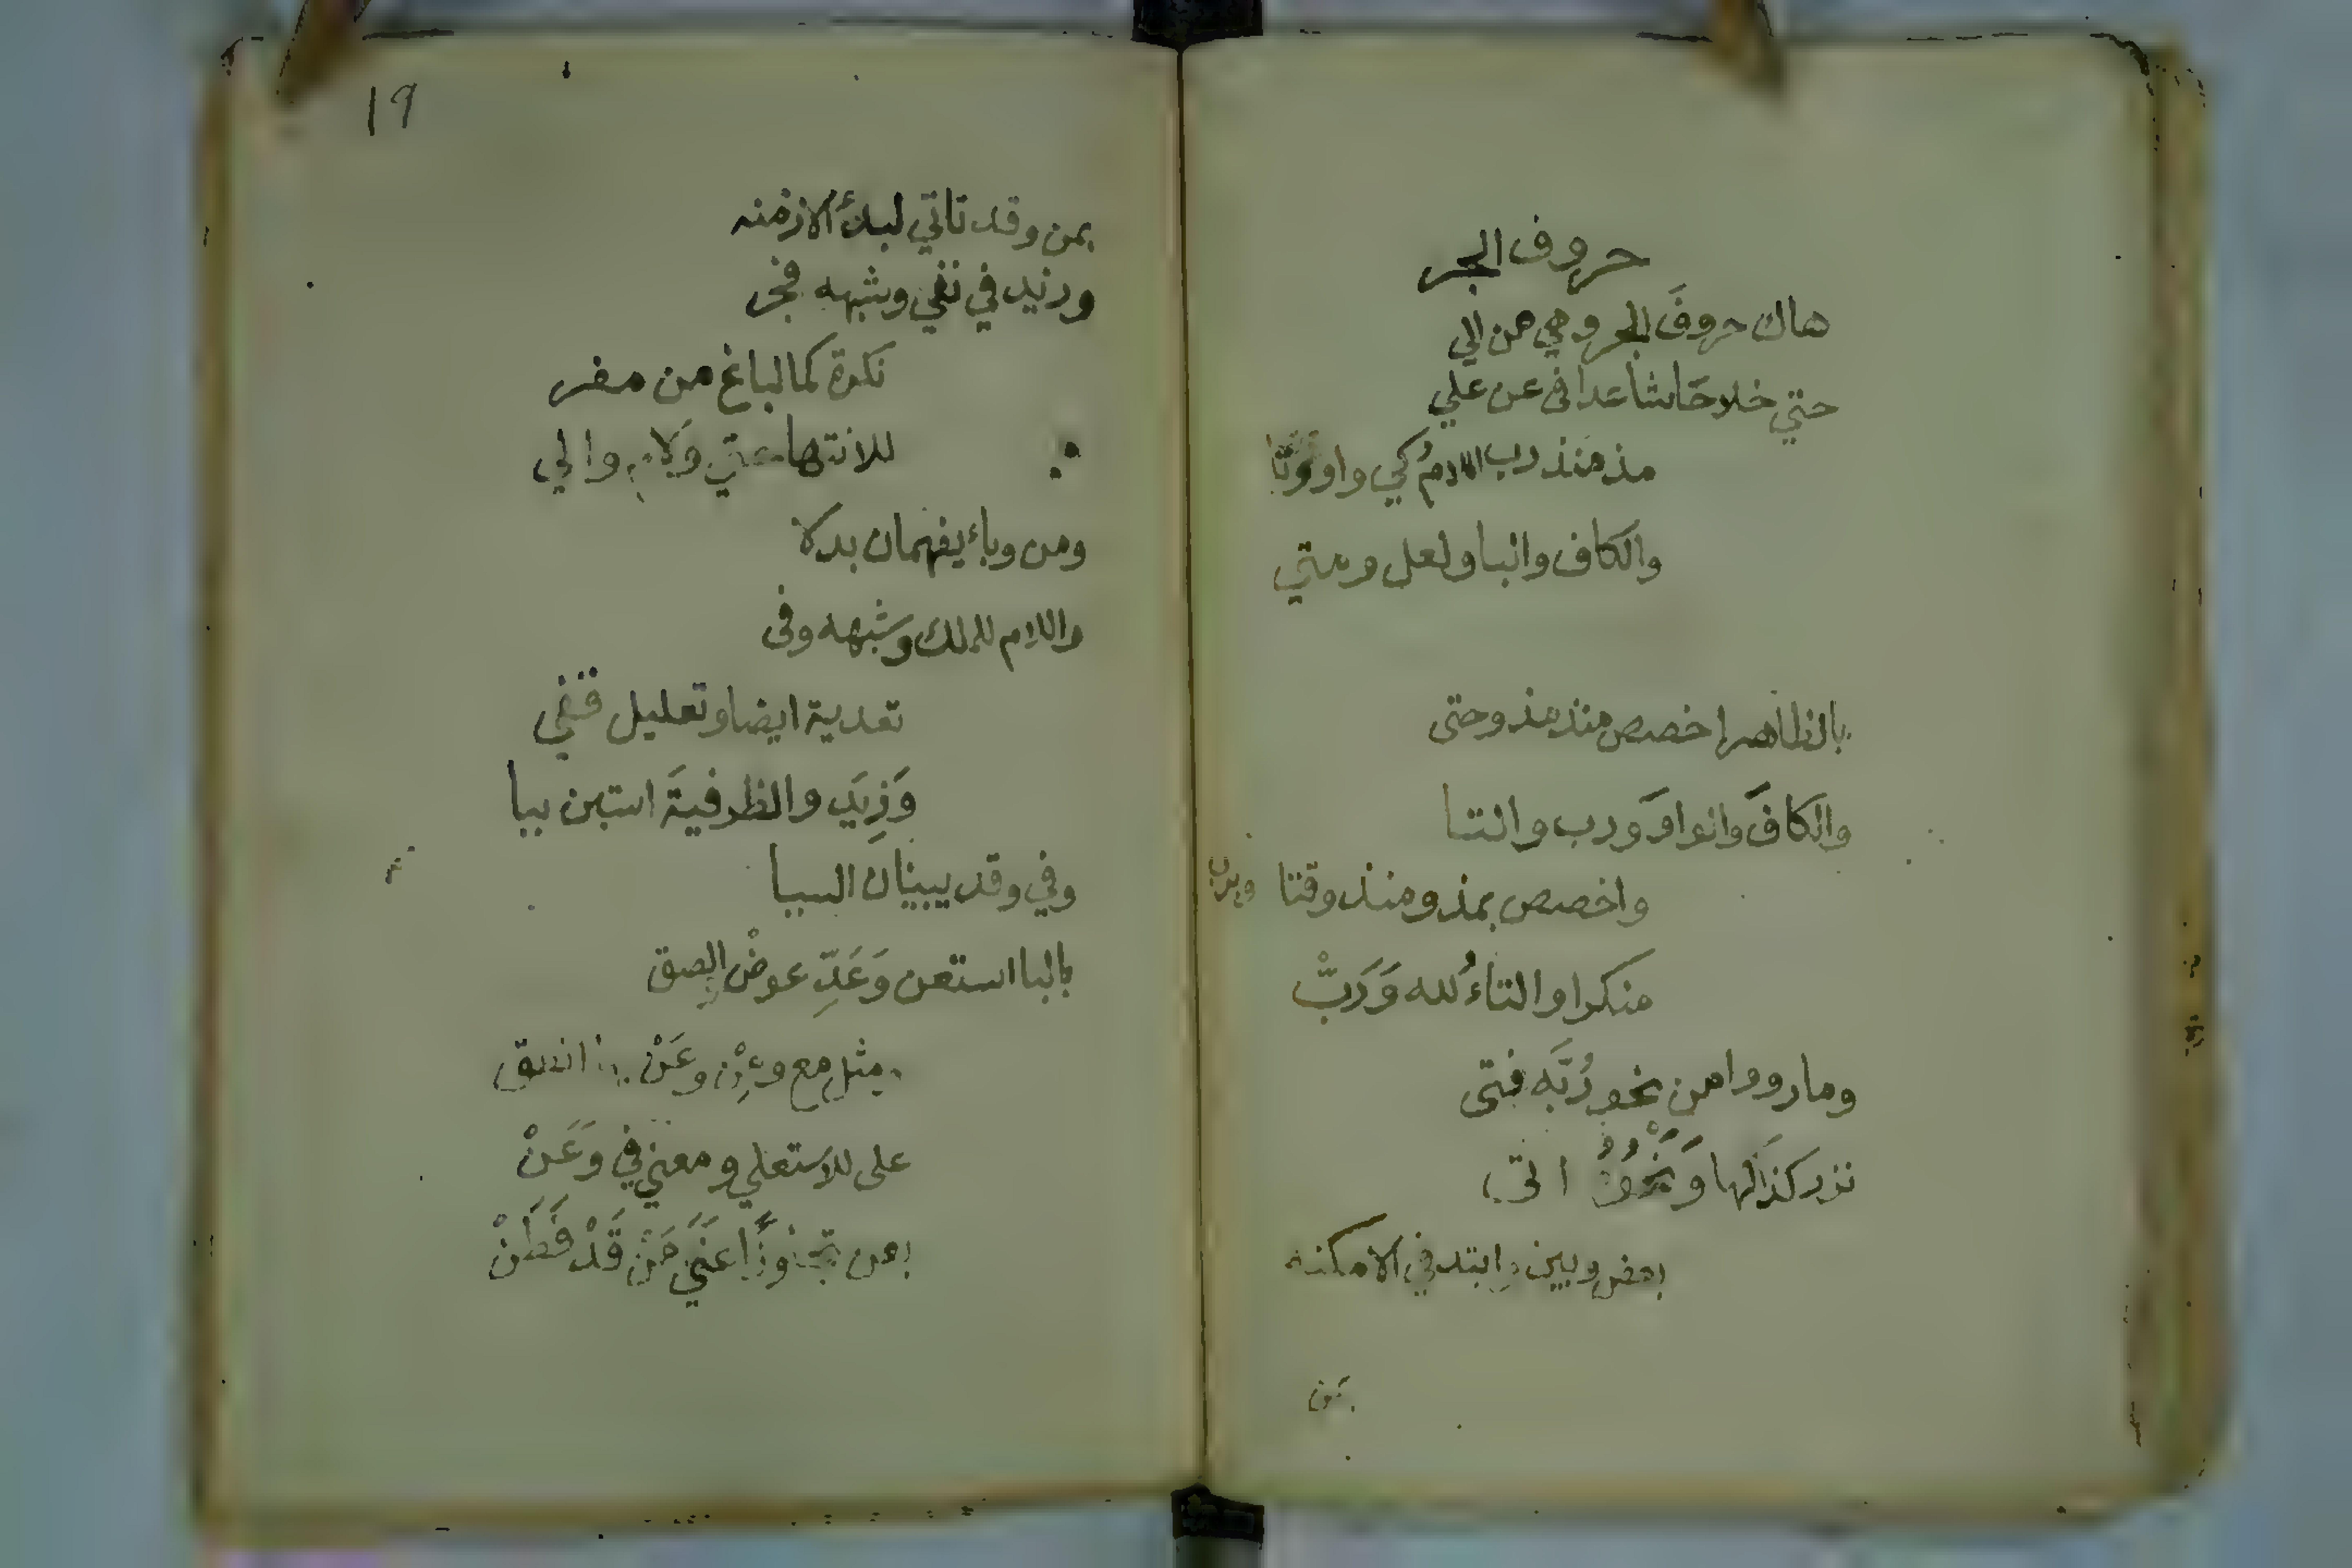 حروف الجر
هاك حروفَ الجر وهي من الي
حتي خلا حاشا عدا في عن علي
مذ منذ رب اللامُ كي واو وتا
والكاف والبا ولعل ومتي
بالظاهر اخصص منذ مذ وحتى
والكافَ والواوَ ورب والتا
واخصص بمذ ومنذ وقتا وبرب
منكرا والتاءُ لله وَرَبّْ
وما رووا من نحو رُبَّه فتى
نزر كذَا كها وَنَحْوُهُ اتى
بعض وبين وابتد في الامكنه
بمن
١٩
بمن وقد تاتي لبدء الازمنه
وزيد في نفي وشبهه فجر
نكرة كما لباغ من مفر
للانتها حتي وَلام والي
ومن وباء يفهمان بدلا
واللام للملك وشبهه وفي
تعدية ايضا وتعليل قفي
وَزِيَد والظرفيةَ استبن ببا
وفي وقد يبينان السببا
بالبا استعن وَعَدِّ عوضْ الصق
ومثل مع ومِنْ وعَنْ بها انطق
على للاستعلي ومعني في وَعَنْ
بعن تجاوزًا عَنَي مَن قَدْ فَطَنْ